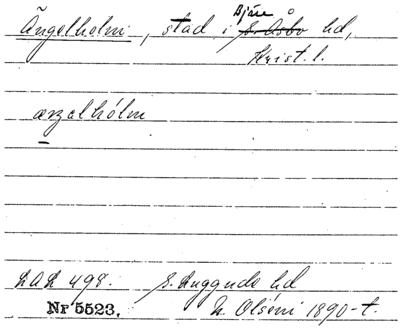 Ängelholm, stad i Bjäre S. Åsbo hd,
Krist. l.
ærzalhólm
LAL 498. S. Luggude hd
Nr 5523. N. Olséni 1890-t.